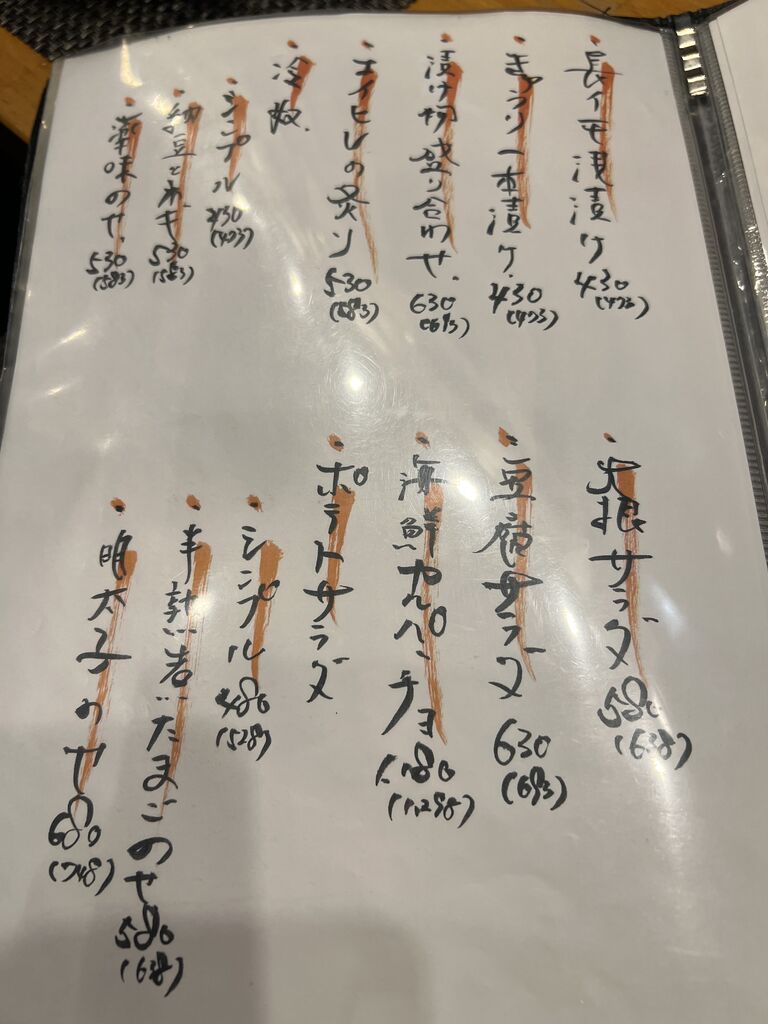 長イモ浅漬け 430 (473)
きゅうり一本漬ケ 430 (473)
漬け物盛り合わせ 630 (693)
エイヒレの炙り 530 (583)
冷奴
シンプル 430 (473)
納豆とネギ 530 (583)
薬味のせ 530 (583)
大根サラダ 580 (638)
豆腐サラダ 630 (693)
海鮮カルパッチョ 1,180 (1,298)
ポテトサラダ
シンプル 480 (528)
半熟煮たまごのせ 580 (638)
明太子のせ 680 (748)